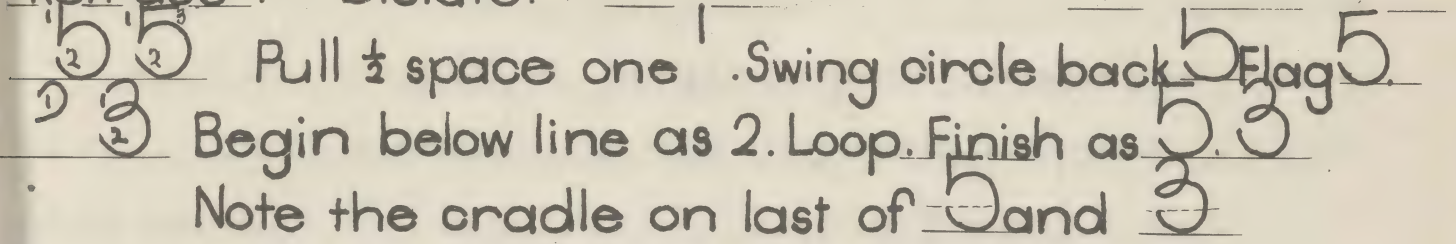 5 5 Pull ½ space one 1. Swing circle back 5 Flag 5.
3 Begin below line as 2. Loop. Finish as 5. 3
Note the cradle on last of 5 and 3